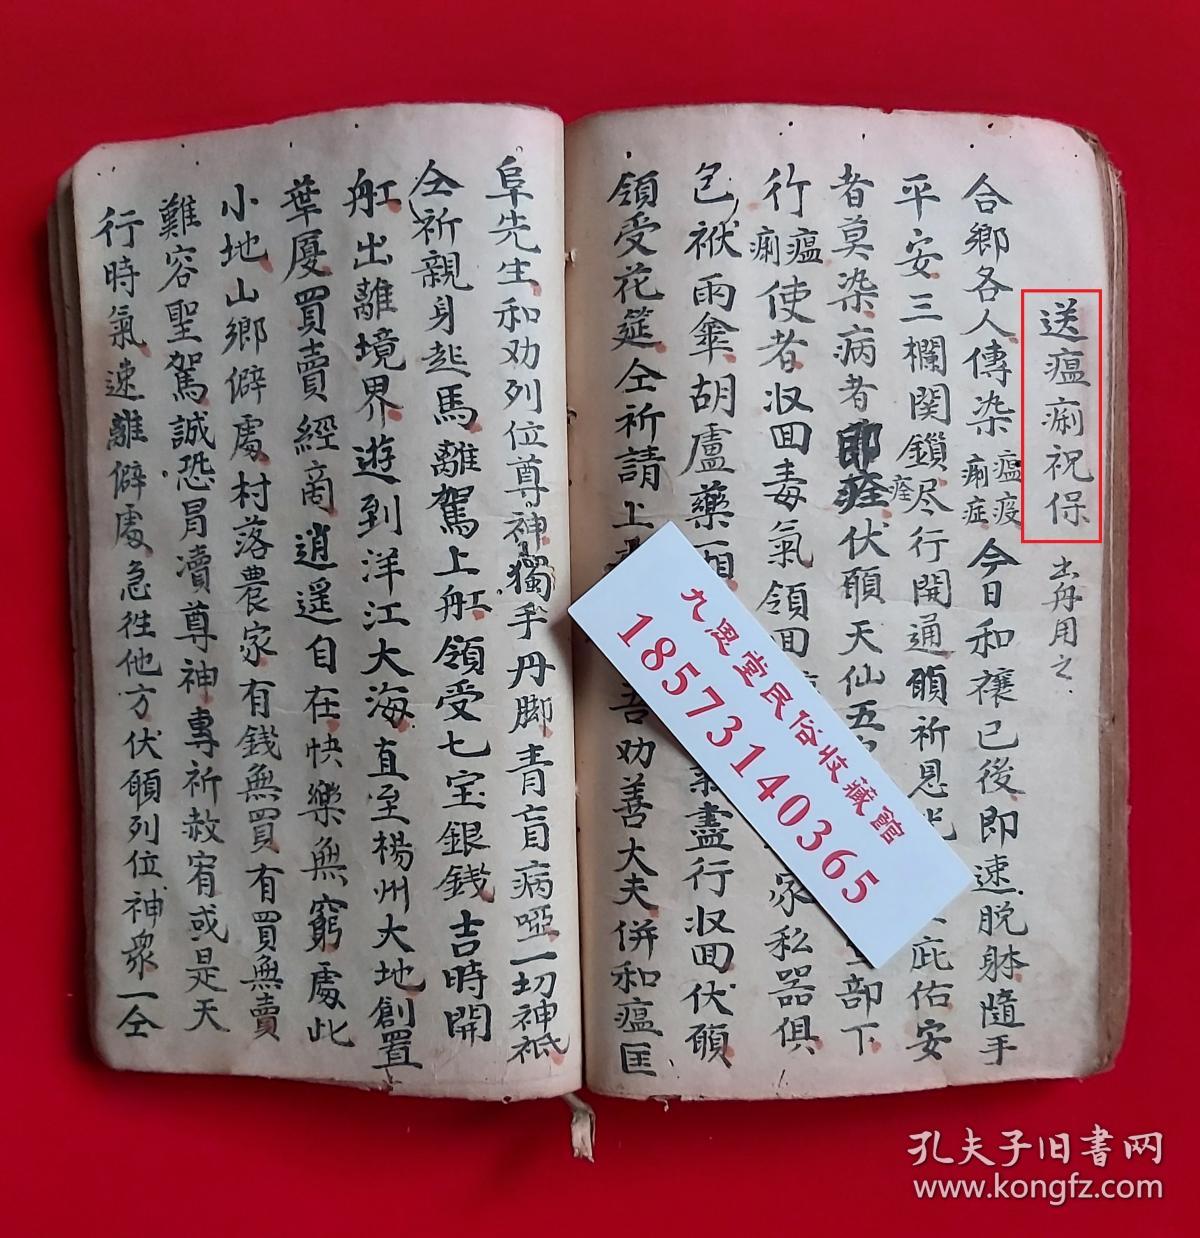 送瘟痢祝保 出舟用之
合鄉各人傳染瘟疫痢症今日和禳已後即速脫躰隨手
平安三欄関鎖尽行開通願祈恩光庇佑安
者莫染病者即痊痊伏願天仙五部下
行瘟痢使者収回毒氣領回家私器俱
包袱雨傘胡盧藥箱盡行収回伏願
領受花筵仝祈請上吾劝善大夫併和瘟匡
阜先生和劝列位尊神獨手丹脚青盲病啞一切神祇
仝祈親身起馬離駕上舡領受七宝銀銭吉時開
舡出離境界遊到洋江大海直至楊州大地創置
葉厦買賣經商逍遥自在快樂無窮處此
小地山鄉僻處村落農家有銭無買有買無賣
難容聖駕誠恐冒瀆尊神專祈赦宥或是天
行時氣速離僻處急往他方伏願列位神衆一仝
九思堂民俗收藏館
18573140365
孔夫子旧書网
www.kongfz.com